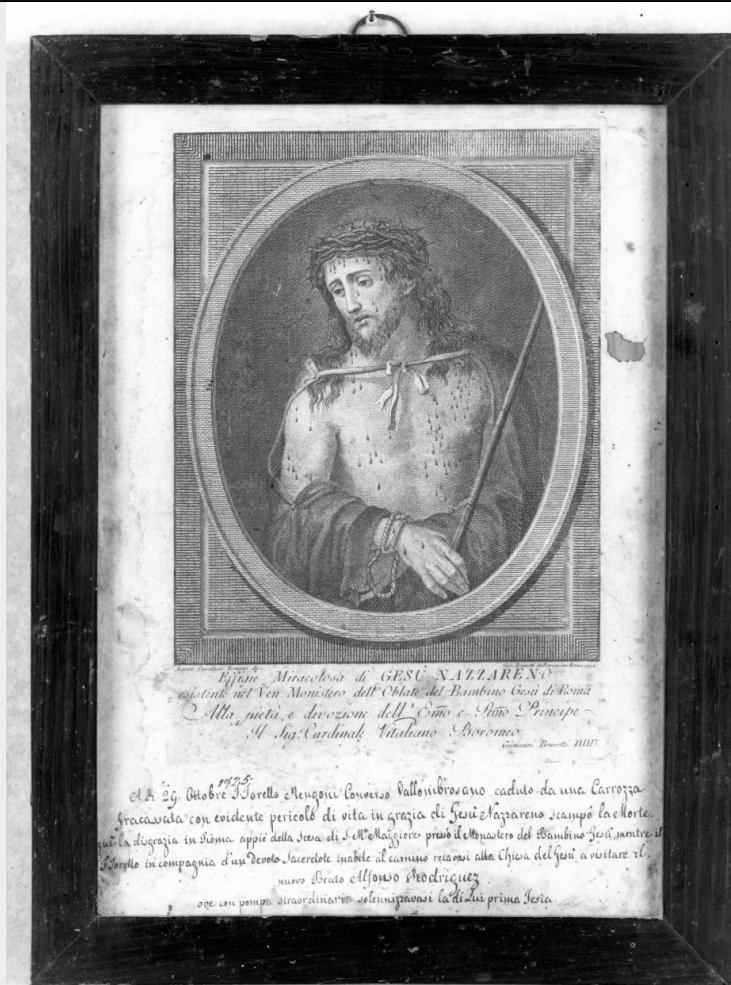 Effigie Miracolosa di GESÙ NAZZARENO
esistente nel Ven Monistero dell'Oblate del Bambino Gesù di Roma
Alla pietà, e divozione dell' Emo e Rmo Principe
Il Sig. Cardinale Vitaliano Boromeo
Giovanni Brunetti DDD
A di 29. Ottobre 1825. Torello Mengoni Converso Vallombrosano caduto da una Carrozza
fracassata con evidente pericolo di vita in grazia di Gesù Nazzareno scampò la Morte.
qui la disgrazia in Roma appiè della Scesa di S. Ma Maggiore presso il Monastero del Bambino Gesù, mentre il
Torello in compagnia d'un devoto Sacerdote inabile al camino recavasi alla Chiesa del Gesù a visitare il
nuovo Beato Alfonso Rodriguez
ove con pompa straordinaria solennizavasi la di Lui prima Festa.